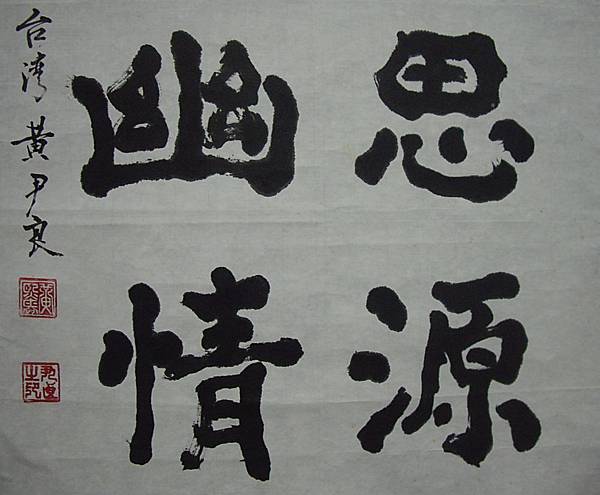 思源
幽情
台湾 黄尹良